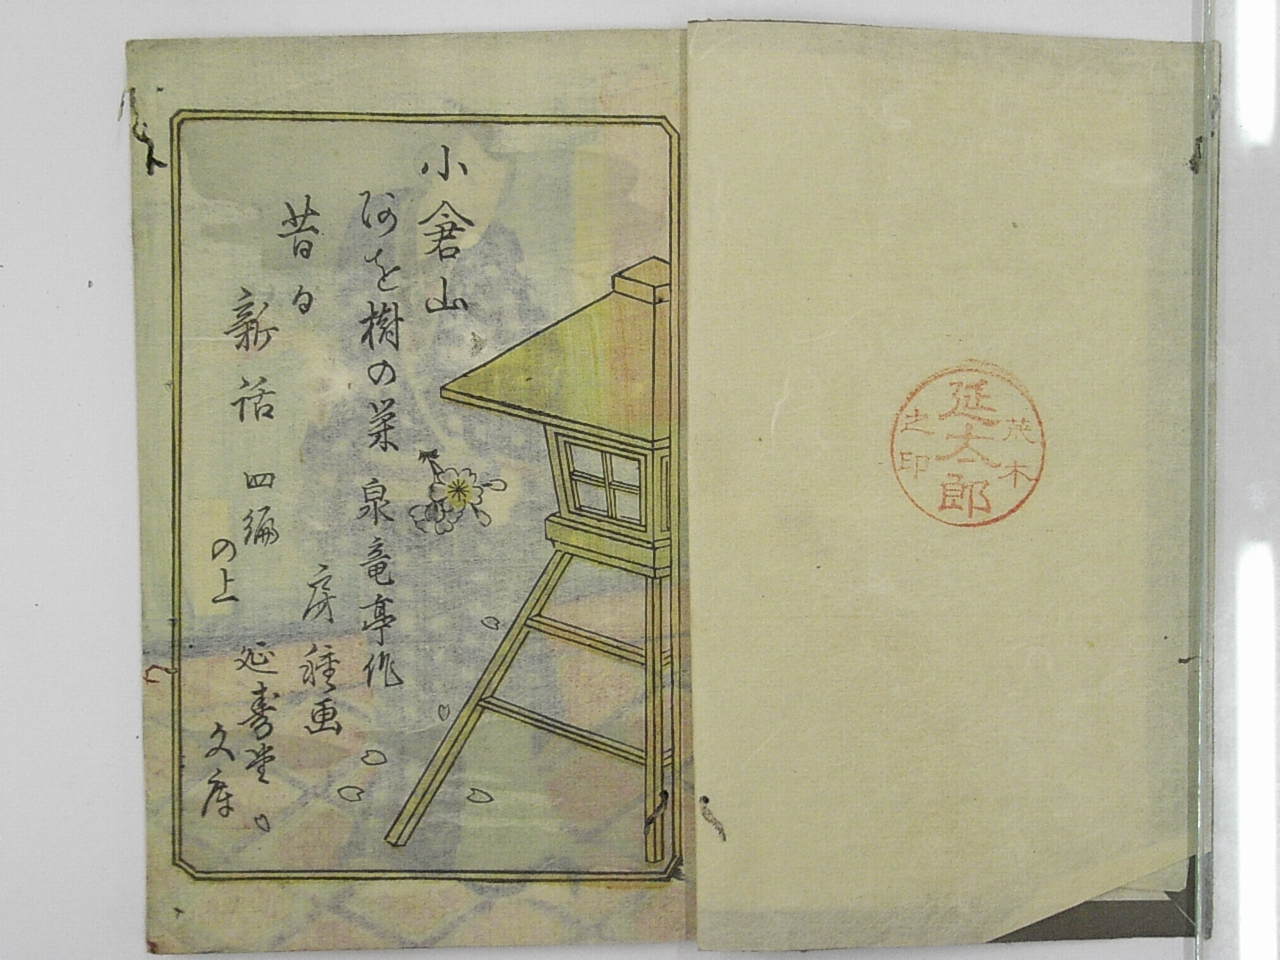 茂木
延太郎
之印
小倉山
阿を樹の栄 泉竜亭作
昔日
房種画
新話 四編
の上
延壽堂
文庫